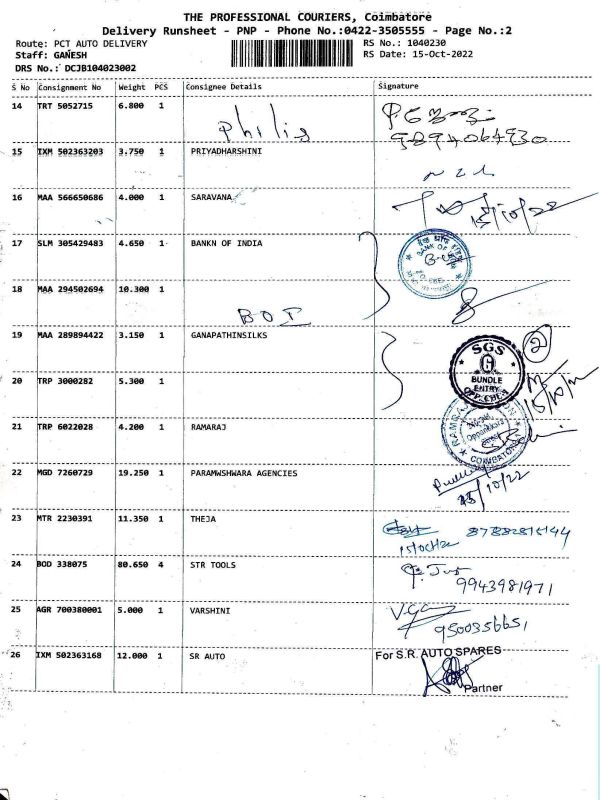 THE PROFESSIONAL COURIERS, Coimbatore
Delivery Runsheet - PNP - Phone No.:0422-3505555 - Page No.:2
Route: PCT AUTO DELIVERY RS No.: 1040230
Staff: GANESH RS Date: 15-Oct-2022
DRS No.: DCJB104023002
S No Consignment No Weight PCS Consignee Details Signature
14 TRT 5052715 6.800 1 Philip
9894064930
15 IXM 502363203 3.750 1 PRIYADHARSHINI
16 MAA 566650686 4.000 1 SARAVANA 15/10/22
17 SLM 305429483 4.650 1 BANKN OF INDIA
BANK OF
18 MAA 294502694 10.300 1 BOI
19 MAA 289894422 3.150 1 GANAPATHINSILKS 2
SGS
G
BUNDLE
ENTRY
20 TRP 3000282 5.300 1
21 TRP 6022028 4.200 1 RAMARAJ
COIMBATORE
22 MGD 7260729 19.250 1 PARAMWSHWARA AGENCIES 15/10/22
23 MTR 2230391 11.350 1 THEJA
15/Oct/22
24 BOD 338075 80.650 4 STR TOOLS
9943981971
25 AGR 700380001 5.000 1 VARSHINI
9500356651
26 IXM 502363168 12.000 1 SR AUTO For S.R. AUTO SPARES
Partner